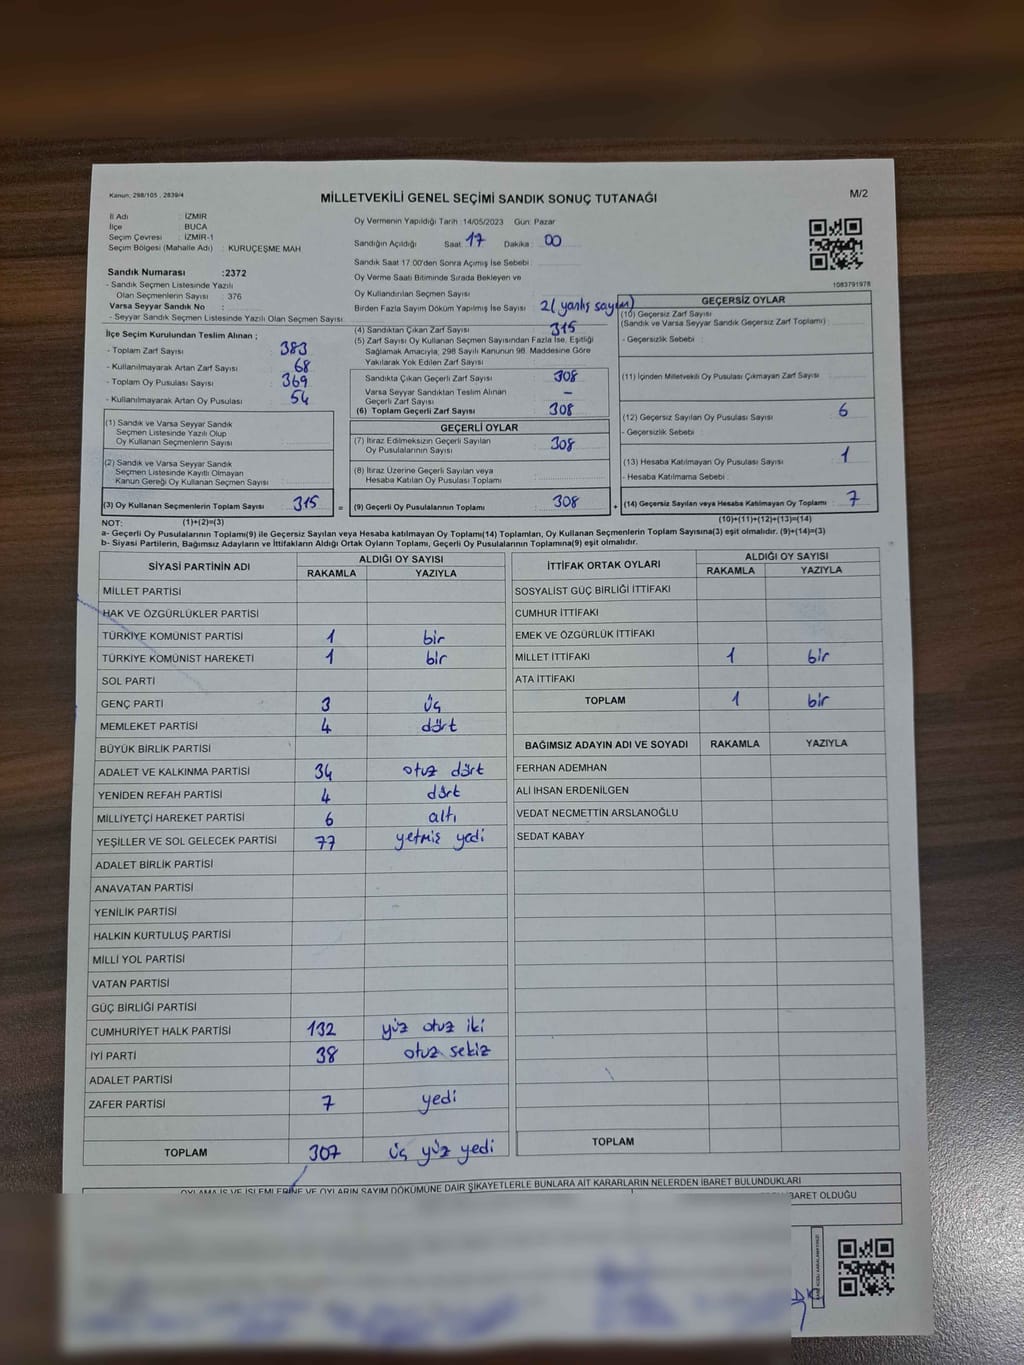 Kanun: 298/105 , 2839/4
MİLLETVEKİLİ GENEL SEÇİMİ SANDIK SONUÇ TUTANAĞI
M/2
İl Adı : İZMİR
İlçe : BUCA
Seçim Çevresi : İZMİR-1
Seçim Bölgesi (Mahalle Adı) : KURUÇEŞME MAH
Sandık Numarası :2372
- Sandık Seçmen Listesinde Yazılı
Olan Seçmenlerin Sayısı : 376
Varsa Seyyar Sandık No :
- Seyyar Sandık Seçmen Listesinde Yazılı Olan Seçmen Sayısı:
Oy Vermenin Yapıldığı Tarih :14/05/2023 Gün: Pazar
Sandığın Açıldığı Saat 17 Dakika : 00
Sandık Saat 17:00'den Sonra Açılmış İse Sebebi :
Oy Verme Saati Bitiminde Sırada Bekleyen ve
Oy Kullandırılan Seçmen Sayısı :
Birden Fazla Sayım Döküm Yapılmış İse Sayısı : 2 (yanlış sayım)
1083791978
İlçe Seçim Kurulundan Teslim Alınan ;
- Toplam Zarf Sayısı : 383
- Kullanılmayarak Artan Zarf Sayısı : 68
- Toplam Oy Pusulası Sayısı : 369
- Kullanılmayarak Artan Oy Pusulası : 54
(1) Sandık ve Varsa Seyyar Sandık
Seçmen Listesinde Yazılı Olup
Oy Kullanan Seçmenlerin Sayısı :
(2) Sandık ve Varsa Seyyar Sandık
Seçmen Listesinde Kayıtlı Olmayan
Kanun Gereği Oy Kullanan Seçmen Sayısı :
(3) Oy Kullanan Seçmenlerin Toplam Sayısı : 315 =
(4) Sandıktan Çıkan Zarf Sayısı : 315
(5) Zarf Sayısı Oy Kullanan Seçmen Sayısından Fazla İse, Eşitliği
Sağlamak Amacıyla, 298 Sayılı Kanunun 98. Maddesine Göre
Yakılarak Yok Edilen Zarf Sayısı :
Sandıkta Çıkan Geçerli Zarf Sayısı : 308
Varsa Seyyar Sandıktan Teslim Alınan
Geçerli Zarf Sayısı : –
(6) Toplam Geçerli Zarf Sayısı : 308
GEÇERLİ OYLAR
(7) İtiraz Edilmeksizin Geçerli Sayılan
Oy Pusulalarının Sayısı : 308
(8) İtiraz Üzerine Geçerli Sayılan veya
Hesaba Katılan Oy Pusulası Toplamı :
(9) Geçerli Oy Pusulalarının Toplamı : 308 +
GEÇERSİZ OYLAR
(10) Geçersiz Zarf Sayısı
(Sandık ve Varsa Seyyar Sandık Geçersiz Zarf Toplamı) :
- Geçersizlik Sebebi :
(11) İçinden Milletvekili Oy Pusulası Çıkmayan Zarf Sayısı :
(12) Geçersiz Sayılan Oy Pusulası Sayısı : 6
- Geçersizlik Sebebi :
(13) Hesaba Katılmayan Oy Pusulası Sayısı : 1
- Hesaba Katılmama Sebebi :
(14) Geçersiz Sayılan veya Hesaba Katılmayan Oy Toplamı : 7
NOT: (1)+(2)=(3)
(10)+(11)+(12)+(13)=(14)
a- Geçerli Oy Pusulalarının Toplamı(9) ile Geçersiz Sayılan veya Hesaba katılmayan Oy Toplamı(14) Toplamları, Oy Kullanan Seçmenlerin Toplam Sayısına(3) eşit olmalıdır. (9)+(14)=(3)
b- Siyasi Partilerin, Bağımsız Adayların ve İttifakların Aldığı Ortak Oyların Toplamı, Geçerli Oy Pusulalarının Toplamına(9) eşit olmalıdır.
SİYASİ PARTİNİN ADI ALDIĞI OY SAYISI
RAKAMLA YAZIYLA
MİLLET PARTİSİ
HAK VE ÖZGÜRLÜKLER PARTİSİ
TÜRKİYE KOMÜNİST PARTİSİ 1 bir
TÜRKİYE KOMÜNİST HAREKETİ 1 bir
SOL PARTİ
GENÇ PARTİ 3 üç
MEMLEKET PARTİSİ 4 dört
BÜYÜK BİRLİK PARTİSİ
ADALET VE KALKINMA PARTİSİ 34 otuz dört
YENİDEN REFAH PARTİSİ 4 dört
MİLLİYETÇİ HAREKET PARTİSİ 6 altı
YEŞİLLER VE SOL GELECEK PARTİSİ 77 yetmiş yedi
ADALET BİRLİK PARTİSİ
ANAVATAN PARTİSİ
YENİLİK PARTİSİ
HALKIN KURTULUŞ PARTİSİ
MİLLİ YOL PARTİSİ
VATAN PARTİSİ
GÜÇ BİRLİĞİ PARTİSİ
CUMHURİYET HALK PARTİSİ 132 yüz otuz iki
İYİ PARTİ 38 otuz sekiz
ADALET PARTİSİ
ZAFER PARTİSİ 7 yedi
TOPLAM 307 üç yüz yedi
İTTİFAK ORTAK OYLARI ALDIĞI OY SAYISI
RAKAMLA YAZIYLA
SOSYALİST GÜÇ BİRLİĞİ İTTİFAKI
CUMHUR İTTİFAKI
EMEK VE ÖZGÜRLÜK İTTİFAKI
MİLLET İTTİFAKI 1 bir
ATA İTTİFAKI
TOPLAM 1 bir
BAĞIMSIZ ADAYIN ADI VE SOYADI RAKAMLA YAZIYLA
FERHAN ADEMHAN
ALİ İHSAN ERDENİLGEN
VEDAT NECMETTİN ARSLANOĞLU
SEDAT KABAY
TOPLAM
OYLAMA İŞ VE İŞLEMLERİNE VE OYLARIN SAYIM DÖKÜMÜNE DAİR ŞİKAYETLERLE BUNLARA AİT KARARLARIN NELERDEN İBARET BULUNDUKLARI
İBARET OLDUĞU